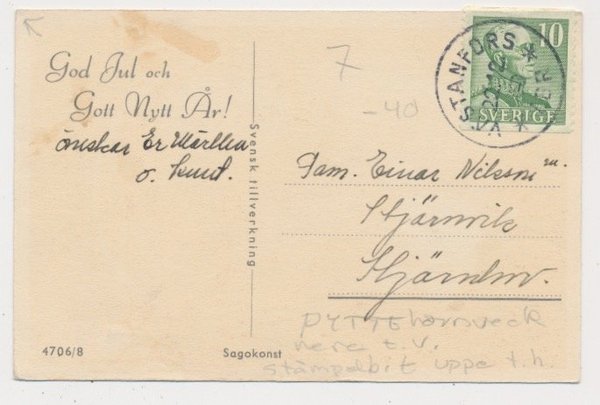 God Jul och
Gott Nytt År!
önskar Er Märtha
o. Knut.
Svensk tillverkning
4706/8
Sagokonst
7
-40
VÄSTANFORS
10
SVERIGE
Fam. Einar Nilsson
Stjärnvik
Stjärnhov.
PYTTEhörnveck
nere t.v.
stämpelbit uppe t.h.